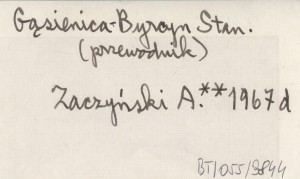 Gąsienica-Byrcyn Stan.
(przewodnik)
Zaczyński A.** 1967 d
BT/055/3844